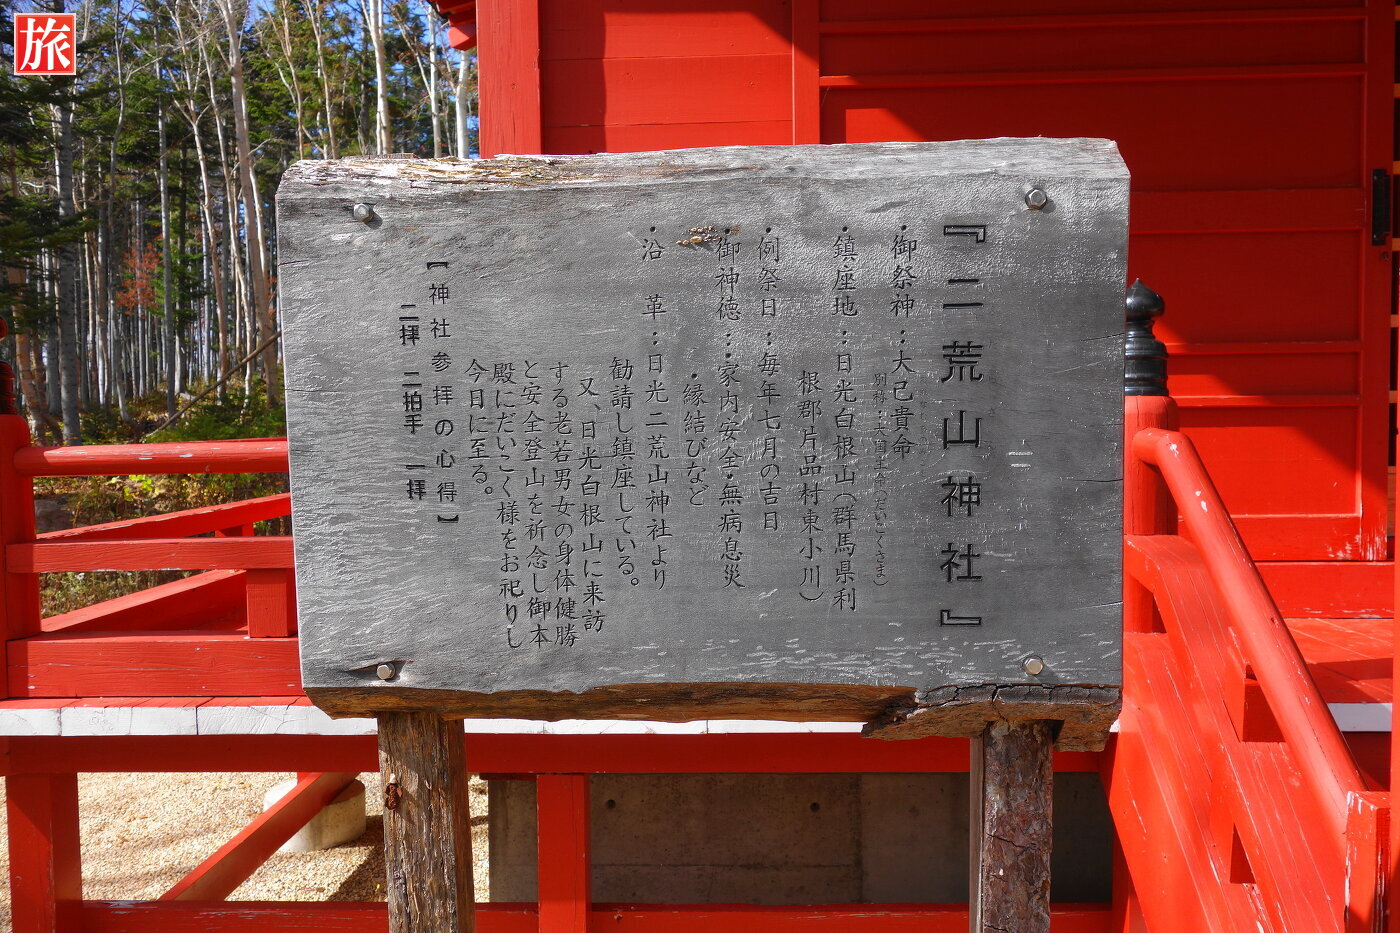 旅
『二荒山神社』
・御祭神：大己貴命
別称：大国主命（だいこくさま）
・鎮座地：日光白根山（群馬県利
根郡片品村東小川）
・例祭日：毎年七月の吉日
・御神徳：・家内安全・無病息災
・縁結びなど
・沿　革：日光二荒山神社より
勧請し鎮座している。
又、日光白根山に来訪
する老若男女の身体健勝
と安全登山を祈念し御本
殿にだいこく様をお祀りし
今日に至る。
【神社参拝の心得】
二拝　二拍手　一拝